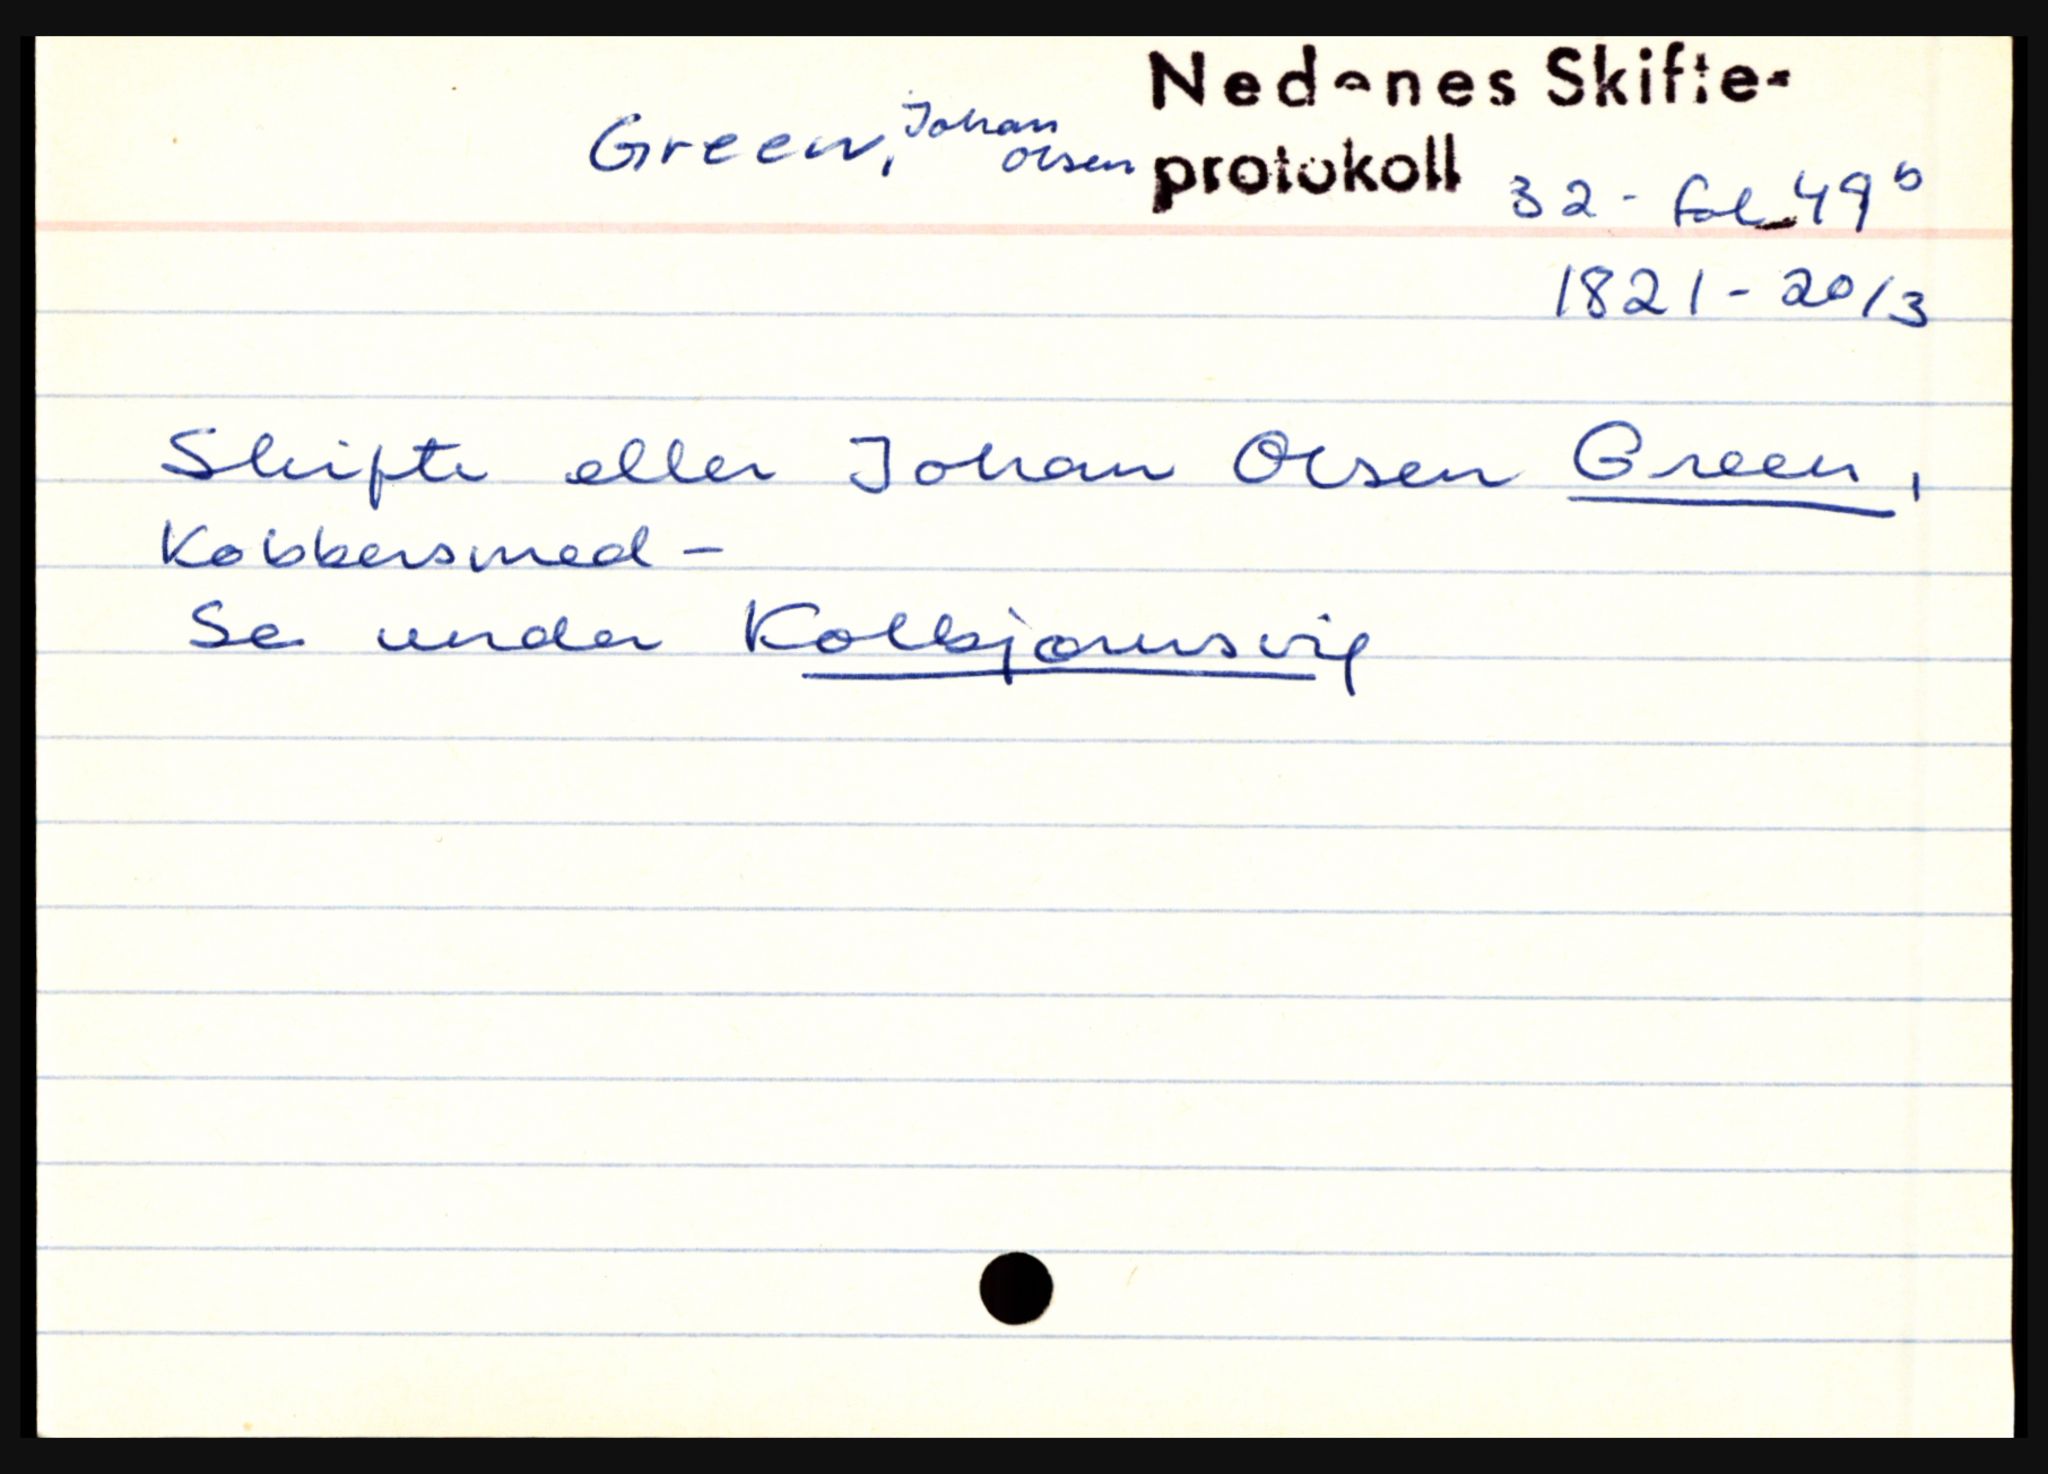 Nedenes Skifte-
Green, Johan Olsen
protokoll 32 - fol 49 b
1821 - 20/3
Skifte eller Johan Olsen Green,
Kobbersmed -
Se under Kolbjørnsvig